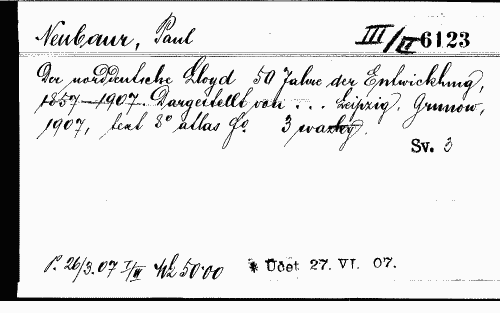 Neubaur, Paul III/II 6123
Der norddeutsche Lloyd 50 Jahre der Entwicklung,
1857-1907. Dargestellt von ... Leipzig. Grunow,
1907, text 8° atlas f°. 3 svazky.
Sv. 3
P. 26/3.07 I/II Mk 50.00 * Účet 27. VI. 07.